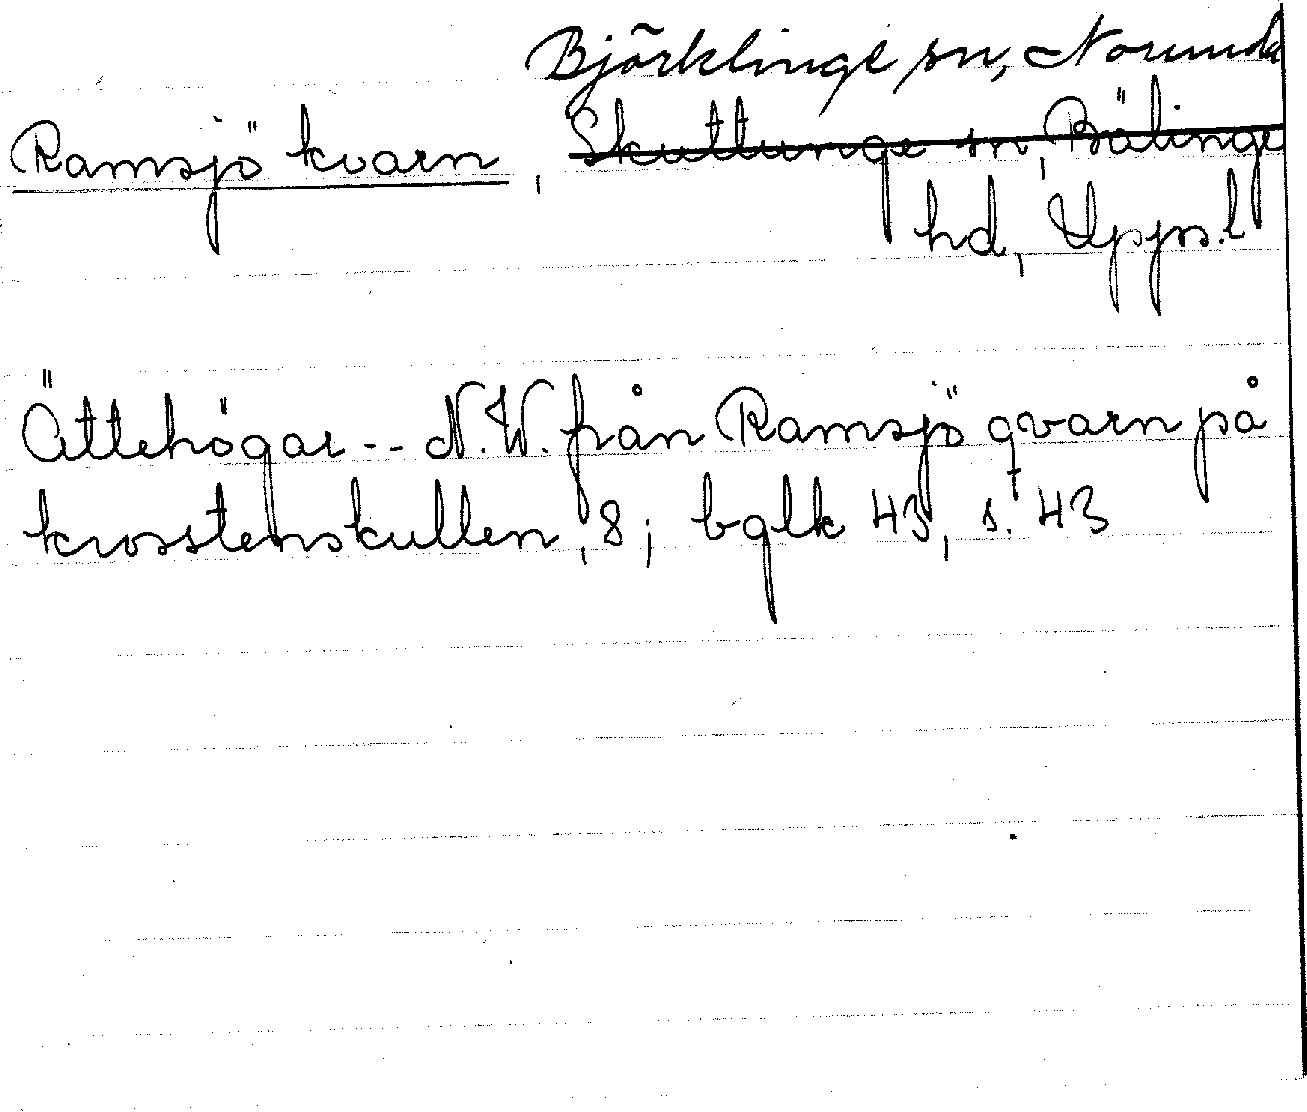 Björklinge sn, Norunda
Ramsjö kvarn, Skuttunge sn, Bälinge
hd, Upps.l
Ättehögar -- N.W. från Ramsjö qvarn på
krosstenskullen, 8; bglk 43, s. 43